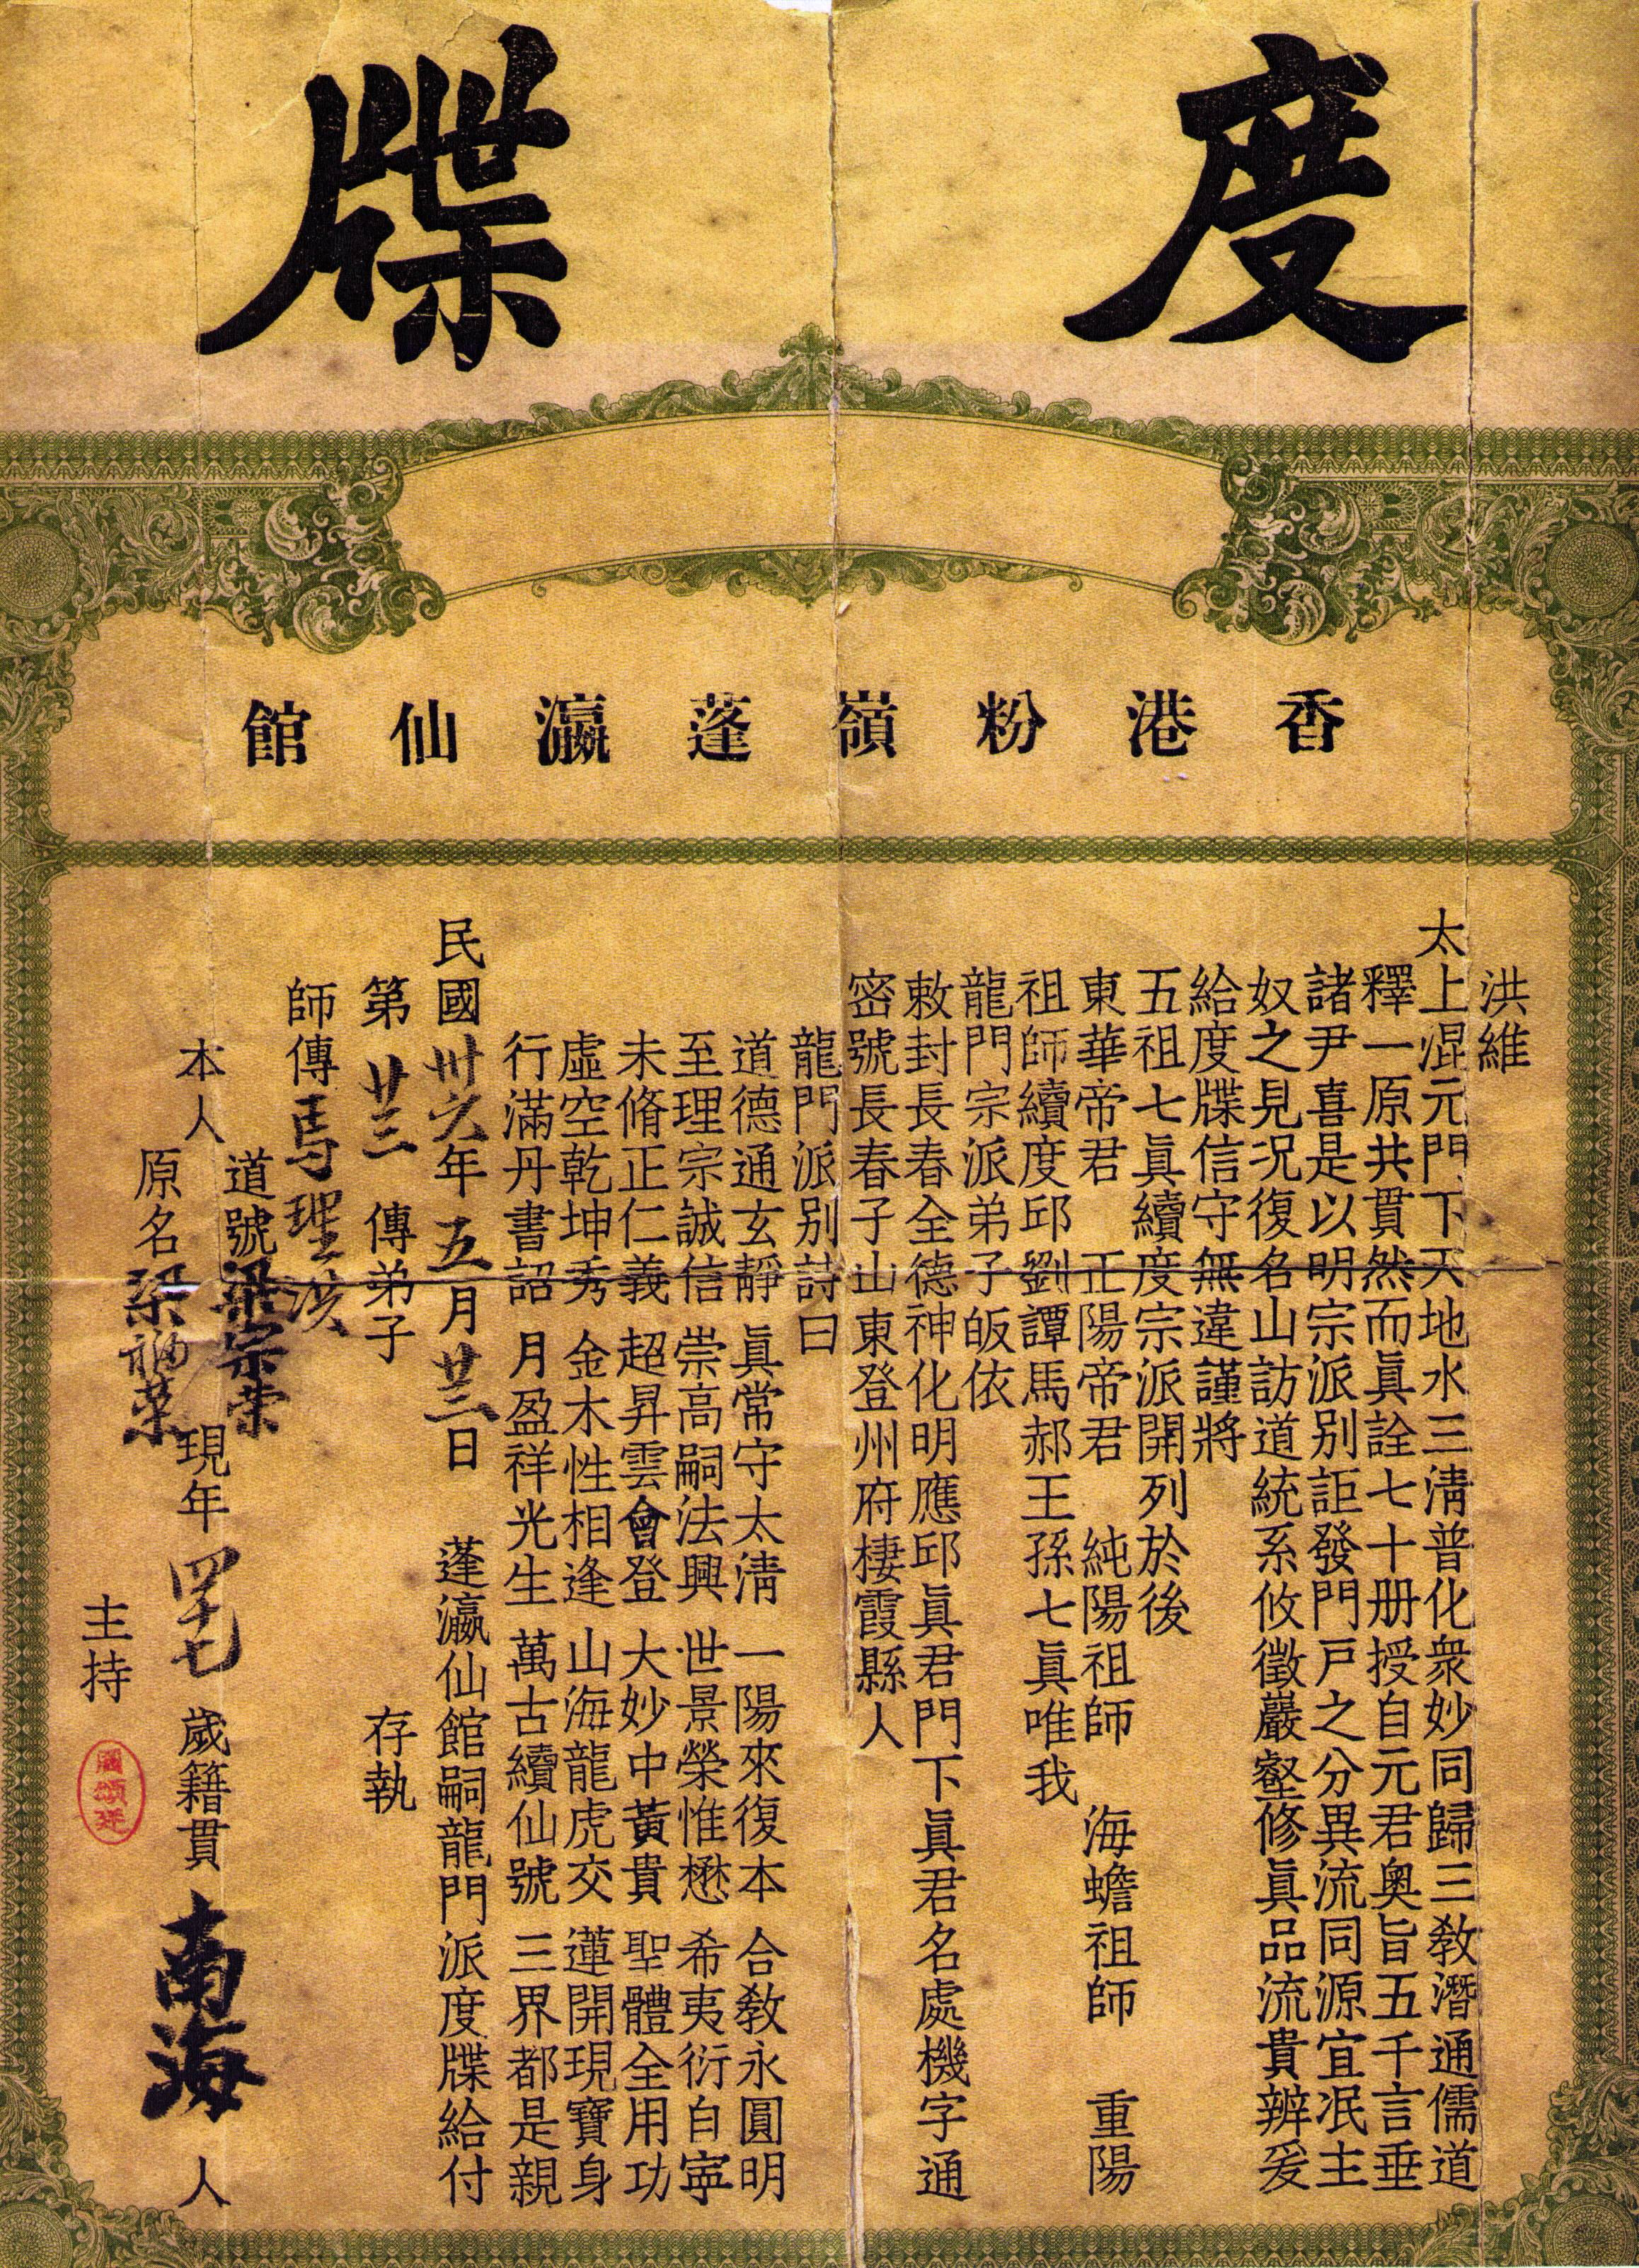 度牒
香港粉嶺蓬瀛仙館
洪維
太上混元門下天地水三淸普化衆妙同歸三敎潛通儒道
釋一原共貫然而眞詮七十册授自元君奧旨五千言垂
諸尹喜是以明宗派別詎發門戶之分異流同源宜泯主
奴之見况復名山訪道統系攸徵巖壑修眞品流貴辨爰
給度牒信守無違謹將
五祖七眞續度宗派開列於後
東華帝君 正陽帝君 純陽祖師 海蟾祖師 重陽
祖師續度邱劉譚馬郝王孫七眞唯我
龍門宗派弟子皈依
敕封長春全德神化明應邱眞君門下眞君名處機字通
密號長春子山東登州府棲霞縣人
龍門派別詩曰
道德通玄靜 眞常守太淸 一陽來復本 合敎永圓明
至理宗誠信 崇高嗣法興 世景榮惟懋 希夷衍自寧
未脩正仁義 超昇雲會登 大妙中黃貴 聖體全用功
虛空乾坤秀 金木性相逢 山海龍虎交 蓮開現寶身
行滿丹書詔 月盈祥光生 萬古續仙號 三界都是親
民國卅六年五月廿三日 蓬瀛仙館嗣龍門派度牒給付
第廿三傳弟子 存執
師傳馬聖洪
道號梁宗榮
本人 現年四十七歲籍貫南海人
原名梁福榮
主持